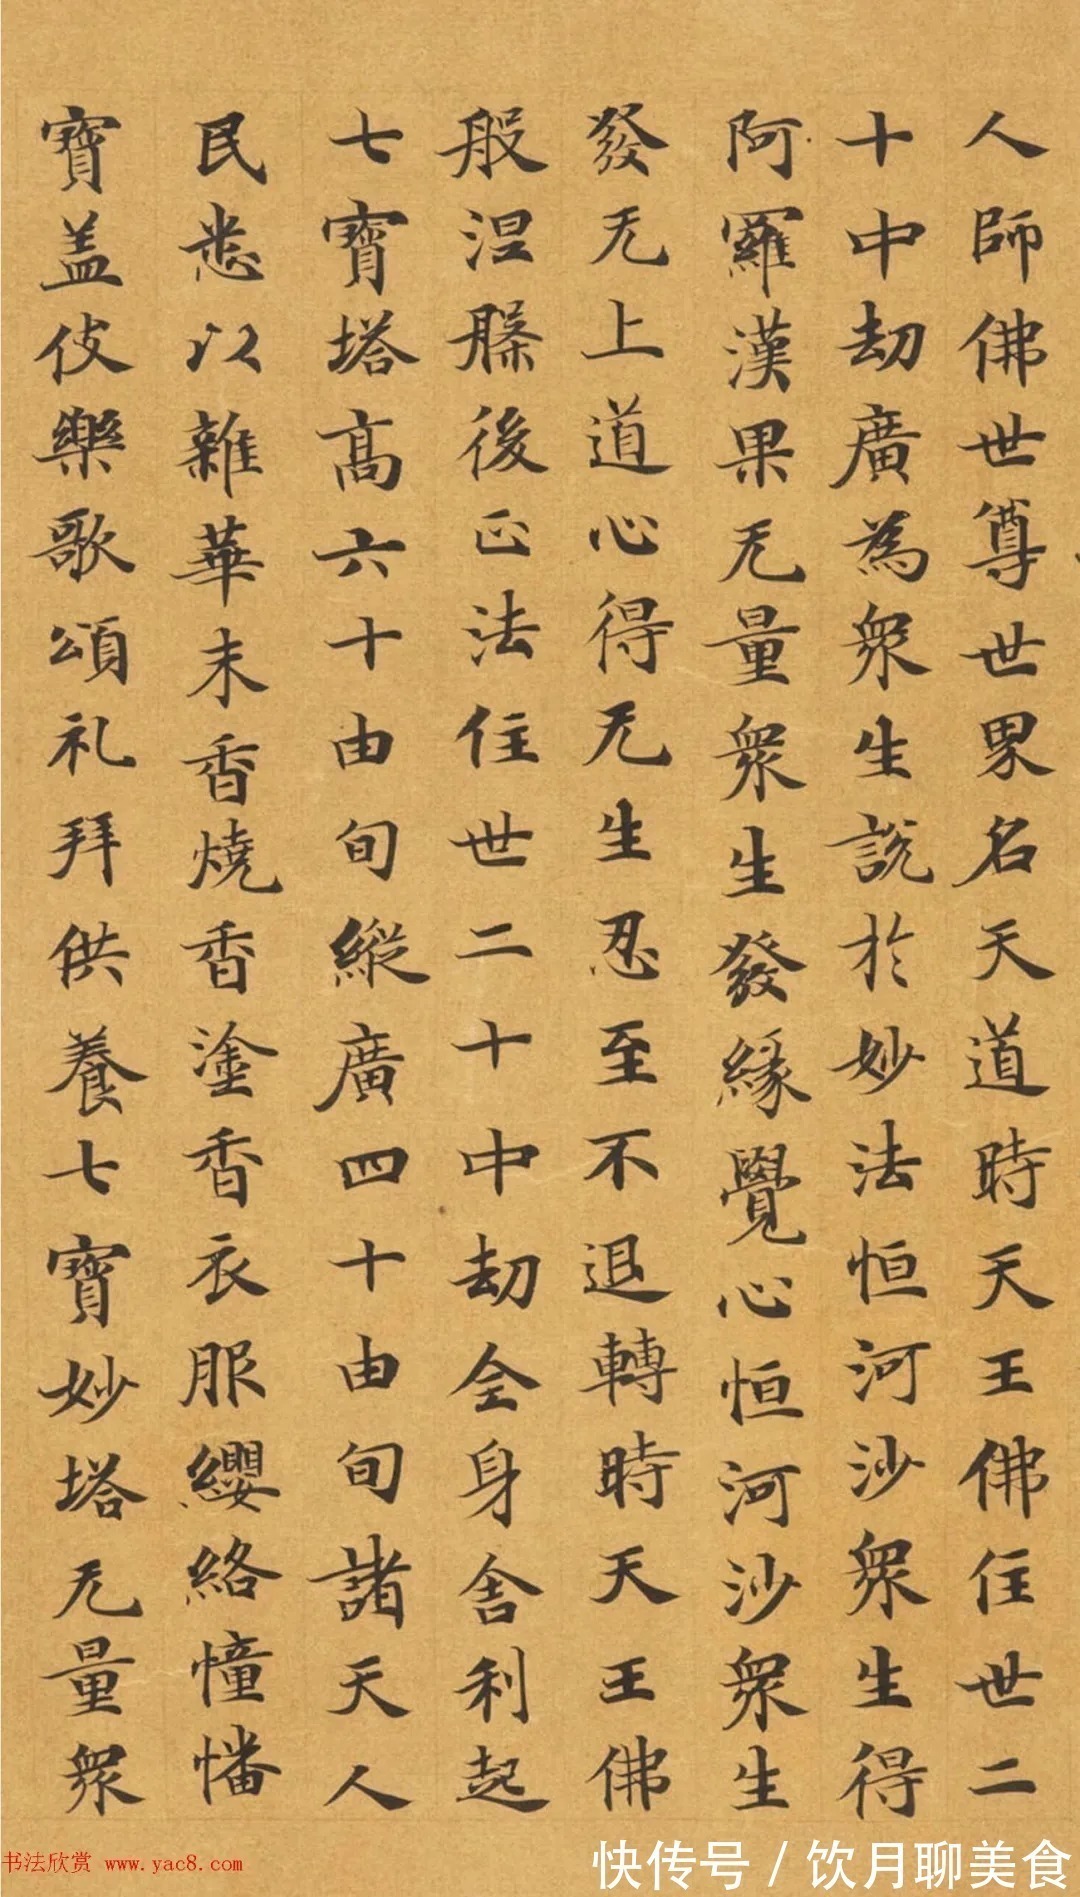 人師佛世尊世界名天道時天王佛住世二
十中劫廣為衆生說於妙法恒河沙衆生得
阿羅漢果无量衆生發緣覺心恒河沙衆生
發无上道心得无生忍至不退轉時天王佛
般涅槃後正法住世二十中劫全身舍利起
七寶塔高六十由旬縱廣四十由旬諸天人
民悉以雜華末香燒香塗香衣服纓絡憧幡
寶盖伎樂歌頌礼拜供養七寶妙塔无量衆
书法欣赏 www.yac8.com
快传号/饮月聊美食